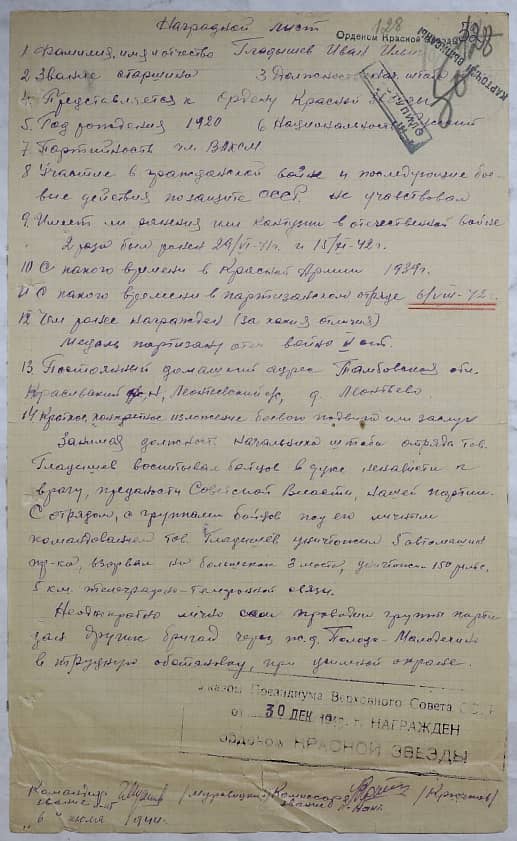 Наградной лист
128
Орденом Красной Звезды
1 Фамилия, имя и отчество Гладышев Иван
2 Звание старшина 3 Должность нач. штаба
4. Представляется к Ордену Красной Звезды
5. Год рождения 1920 6 Национальность русский
7 Партийность чл. ВЛКСМ
8 Участие в гражданской войне и последующие бое-
вые действия по защите СССР. не участвовал
9. Имеет ли ранения или контузии в отечественной войне
2 раза был ранен 29/VI-41г. и 15/VI-42г.
10 С какого времени в Красной Армии 1939г.
11 С какого времени в партизанском отряде 6/VIII-42г.
12 Чем ранее награжден (за какия отличия)
Медаль партизану отеч войны II ст.
13 Постоянный домашний адрес Тамбовская обл.
Леонтьевский с/с, д. Леонтьево
14 Краткое, конкретное изложение боевого подвига или заслуг
Занимая должность начальника штаба отряда тов.
Гладышев воспитывал бойцов в духе ненависти к
врагу, преданости Советской Власти, нашей партии.
С отрядом, с группами бойцов под его личным
командованием тов. Гладышев уничтожил 5 автомашин
пр-ка, взорвал на большаком 3 моста, уничтожил 150 рельс.
5 км. телеграфно-телефонной связи.
Неоднократно лично сам проводил группы парти
зан других бригад через ж.д. Полоцк-Молодечно
в трудную обстановку, при усиленной охране.
Указом Президиума Верховного Совета СССР
от 30 ДЕК 194 г. НАГРАЖДЕН
орденом КРАСНОЙ ЗВЕЗДЫ
Командир /Муровицкий/ Комиссар
звание звание
"6" июля 1944.